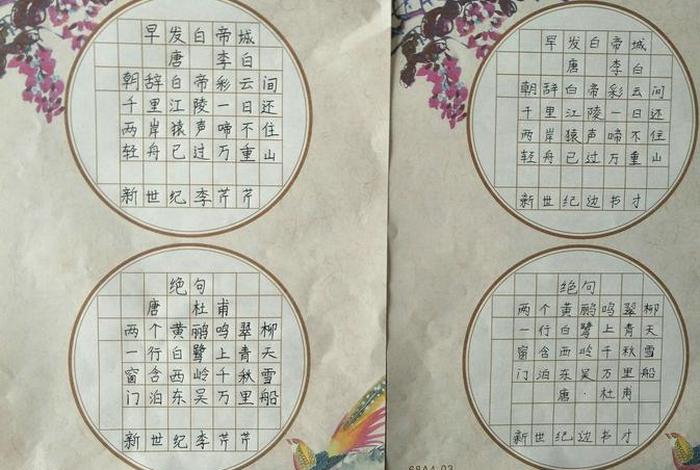 早发白帝城
唐 李白
朝辞白帝彩云间
千里江陵一日还
两岸猿声啼不住
轻舟已过万重山
新世纪李芹芹
绝句
唐 杜甫
两个黄鹂鸣翠柳
一行白鹭上青天
窗含西岭千秋雪
门泊东吴万里船
新世纪李芹芹
早发白帝城
唐 李白
朝辞白帝彩云间
千里江陵一日还
两岸猿声啼不住
轻舟已过万重山
新世纪边书才
绝句
两个黄鹂鸣翠柳
一行白鹭上青天
窗含西岭千秋雪
门泊东吴万里船
唐·杜甫
新世纪边书才